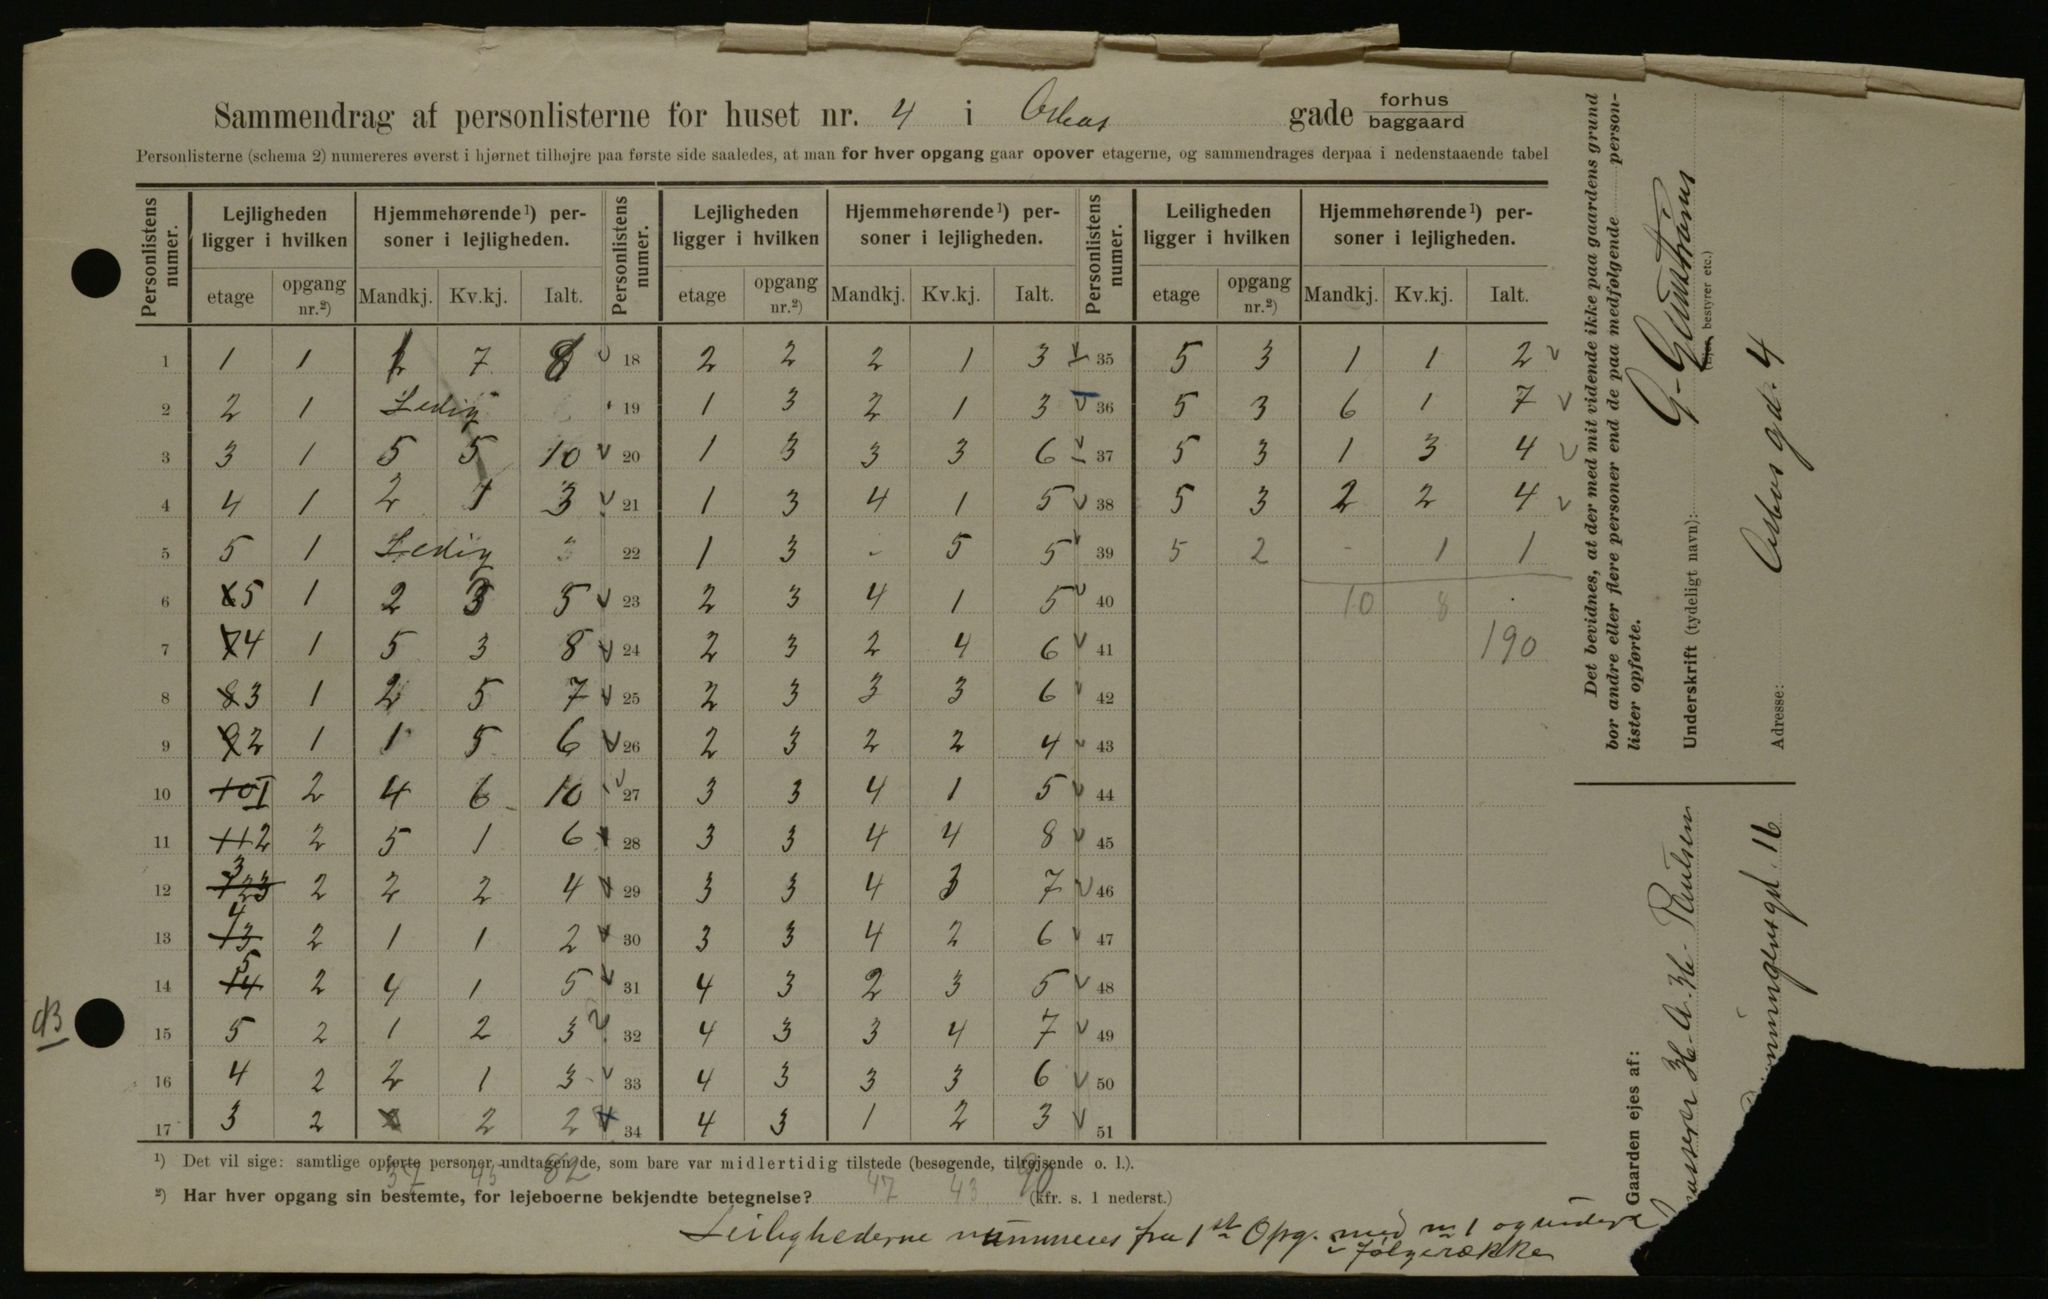 Sammendrag af personlisterne for huset nr. 4 i Osloes gade forhus baggaard
Personlisterne (schema 2) numereres øverst i hjørnet tilhøjre paa første side saaledes, at man for hver opgang gaar opover etagerne, og sammendrages derpaa i nedenstaaende tabel
Personlistens numer. Lejligheden ligger i hvilken Hjemmehørende¹) personer i lejligheden. Personlistens numer. Lejligheden ligger i hvilken Hjemmehørende¹) personer i lejligheden. Personlistens numer. Leiligheden ligger i hvilken Hjemmehørende¹) personer i lejligheden.
etage opgang nr.²) Mandkj. Kv.kj. Ialt. etage opgang nr.²) Mandkj. Kv.kj. Ialt. etage opgang nr.²) Mandkj. Kv.kj. Ialt.
1 1 1 1 7 8 18 2 2 2 1 3 35 5 3 1 1 2
2 2 1 Ledig 19 1 3 2 1 3 36 5 3 6 1 7
3 3 1 5 5 10 20 1 3 3 3 6 37 5 3 1 3 4
4 4 1 2 1 3 21 1 3 4 1 5 38 5 3 2 2 4
5 5 1 Ledig 22 1 3 - 5 5 39 5 2 - 1 1
6 6 5 1 2 3 5 23 2 3 4 1 5 40 10 8
7 7 4 1 5 3 8 24 2 3 2 4 6 41 190
8 8 3 1 2 5 7 25 2 3 3 3 6 42
9 9 2 1 1 5 6 26 2 3 2 2 4 43
10 10 I 2 4 6 10 27 3 3 4 1 5 44
11 11 2 2 5 1 6 28 3 3 4 4 8 45
12 12 3 3 2 2 2 4 29 3 3 4 3 7 46
13 13 4 2 1 1 2 30 3 3 4 2 6 47
14 14 5 2 4 1 5 31 4 3 2 3 5 48
15 5 2 1 2 3 32 4 3 3 4 7 49
16 4 2 2 1 3 33 4 3 3 3 6 50
17 3 2 2 2 34 4 3 1 2 3 51
37 45 82 47 43 90
¹) Det vil sige: samtlige opførte personer undtagen de, som bare var midlertidig tilstede (besøgende, tilrejsende o. l.).
²) Har hver opgang sin bestemte, for lejeboerne bekjendte betegnelse? (kfr. s. 1 nederst.)
Leilighederne nummeres fra 1ste Opg. med no 1 og videre
i Følgerække
Det bevidnes, at der med mit vidende ikke paa gaardens grund
bor andre eller flere personer end de paa medfølgende personlister opførte.
Underskrift (tydeligt navn):
(Ejer, bestyrer etc.)
Adresse: gd. 4
Gaarden ejes af:
H. A. H. Paulsen
116